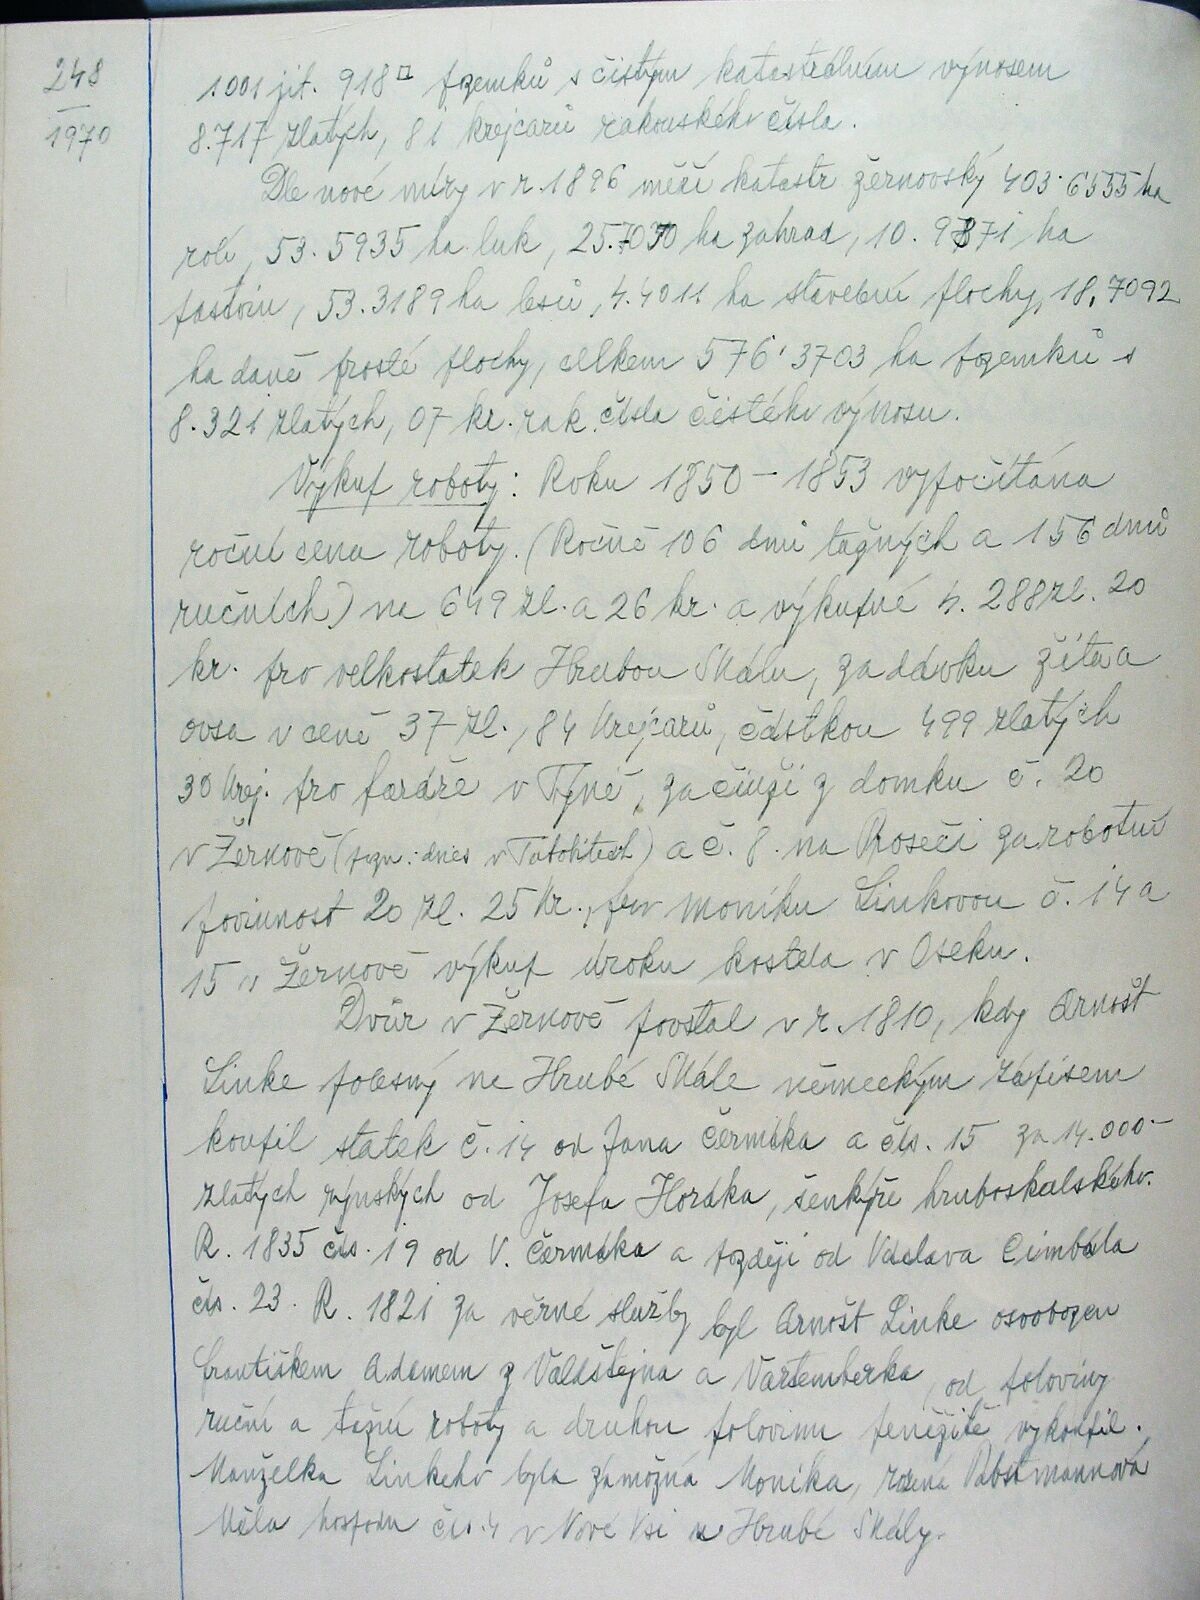 248
1970
1001 jit. 918□ pozemků s čistým katastrálním výnosem
8.717 zlatých, 81 krejcarů rakouského čísla.
Dle nové míry v r. 1896 měří katastr žernovský 403.6555 ha
rolí, 53.5935 ha luk, 25.7070 ha zahrad, 10.9871 ha
pastvin, 53.3189 ha lesů, 4.4011 ha stavební plochy, 18.7092
ha daně prosté plochy, celkem 576.3703 ha pozemků s
8.321 zlatých, 07 kr. rak. čísla čistého výnosu.
Výkup roboty: Roku 1850 – 1853 vypočítána
roční cena roboty. (Ročně 106 dnů tažných a 156 dnů
ručních) na 649 zl. a 26 kr. a výkupné 4. 288 zl. 20
kr. pro velkostatek Hrubou Skálu, za dávku žita a
ovsa v ceně 37 zl., 84 krejcarů, částkou 499 zlatých
30 krej. pro faráře v Týně, za činži z domku č. 20
v Žernově (pozn: dnes v Tatobitech) a č. 8. na Proseči za robotní
povinnost 20 zl. 25 kr., pro Moniku Linkovou č. 14 a
15 v Žernově výkup úroku kostela v Oseku.
Dvůr v Žernově povstal v r. 1810, kdy Arnošt
Linke polesný na Hrubé Skále německým zápisem
koupil statek č. 14 od Jana Čermáka a čís. 15 za 14.000.–
zlatých rýnských od Josefa Horáka, šenkýře hruboskalského.
R. 1835 čís. 19 od V. Čermáka a později od Václava Cimbála
čís. 23. R. 1821 za věrné služby byl Arnošt Linke osvobozen
Františkem Adamem z Valdštejna a Vartemberka, od poloviny
ruční a tažní roboty a druhou polovinu penězitě vykoupil.
Manželka Linkeho byla zámožná Monika, rozená
Měla hospodu čís. 4 v Nové Vsi u Hrubé Skály.